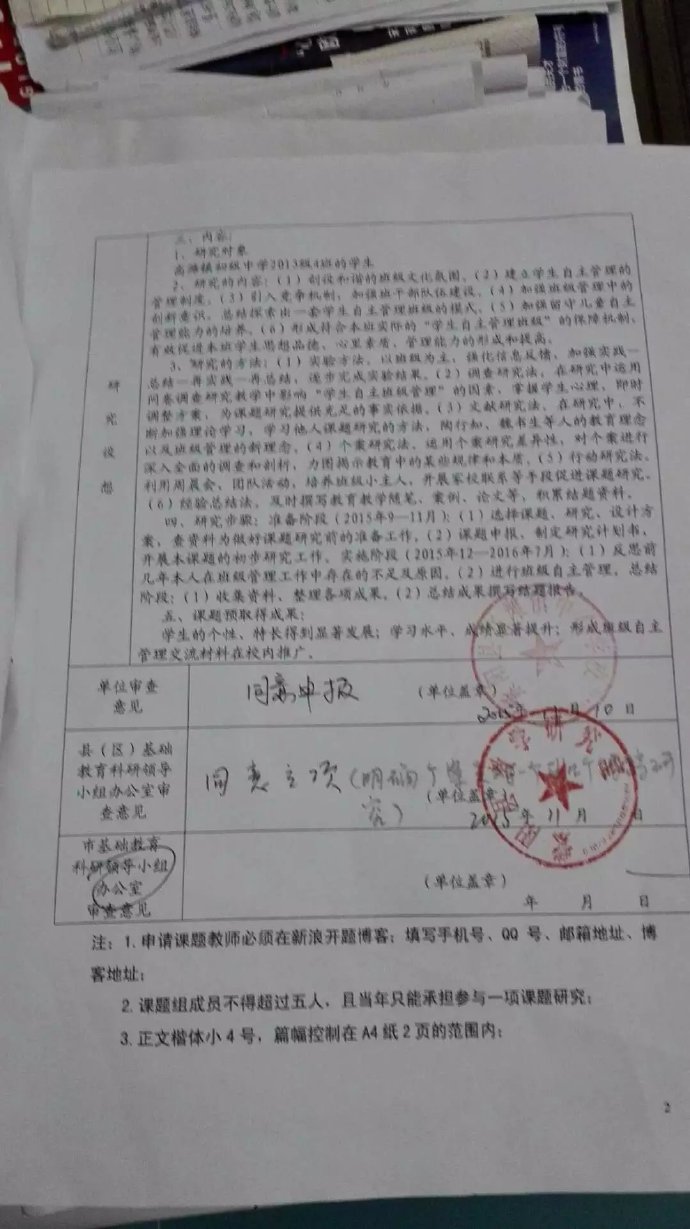 三、内容：
1、研究对象
高滩镇初级中学2013级4班的学生
2、研究的内容：（1）创设和谐的班级文化氛围。（2）建立学生自主管理的
管理制度。（3）引入竞争机制，加强班干部队伍建设。（4）加强班级管理中的
创新意识。总结探索出一套学生自主管理班级的模式。（5）加强留守儿童自主
管理能力的培养。（6）形成符合本班实际的“学生自主管理班级”的保障机制。
有效促进本班学生思想品德、心里素质、管理能力的形成和提高。
3、研究的方法：（1）实验方法。以班级为主，强化信息反馈，加强实践—
总结—再实践—再总结，逐步完成实验结果。（2）调查研究法。在研究中运用
问卷调查研究教学中影响“学生自主班级管理”的因素，掌握学生心理，即时
调整方案，为课题研究提供充足的事实依据。（3）文献研究法。在研究中，不
断加强理论学习，学习他人课题研究的方法，陶行知、魏书生等人的教育理念
以及班级管理的新理念。（4）个案研究法。运用个案研究差异性，对个案进行
深入全面的调查和剖析，力图揭示教育中的某些规律和本质。（5）行动研究法。
利用周晨会、团队活动，培养班级小主人，开展家校联系等手段促进课题研究。
（6）经验总结法。及时撰写教育教学随笔、案例、论文等，积累结题资料。
四、研究步骤：准备阶段（2015年9—11月）：（1）选择课题、研究、设计方
案，查资料为做好课题研究前的准备工作。（2）课题申报、制定研究计划书，
开展本课题的初步研究工作。实施阶段（2015年12—2016年7月）：（1）反思前
几年本人在班级管理工作中存在的不足及原因。（2）进行班级自主管理。总结
阶段：（1）收集资料、整理各项成果。（2）总结成果撰写结题报告。
五、课题预取得成果：
学生的个性、特长得到显著发展；学习水平、成绩显著提升；形成班级自主
管理交流材料在校内推广。
研
究
设
想
单位审查
意见
同意申报
（单位盖章）
2015年11月10日
县（区）基础
教育科研领导
小组办公室审
查意见
同意立项
（单位盖章）
2015年11月 日
市基础教育
科研领导小组
办公室
审查意见
（单位盖章）
年 月 日
注：1.申请课题教师必须在新浪开题博客；填写手机号、QQ号、邮箱地址、博
客地址；
2.课题组成员不得超过五人，且当年只能承担参与一项课题研究；
3.正文楷体小4号，篇幅控制在A4纸2页的范围内；
2